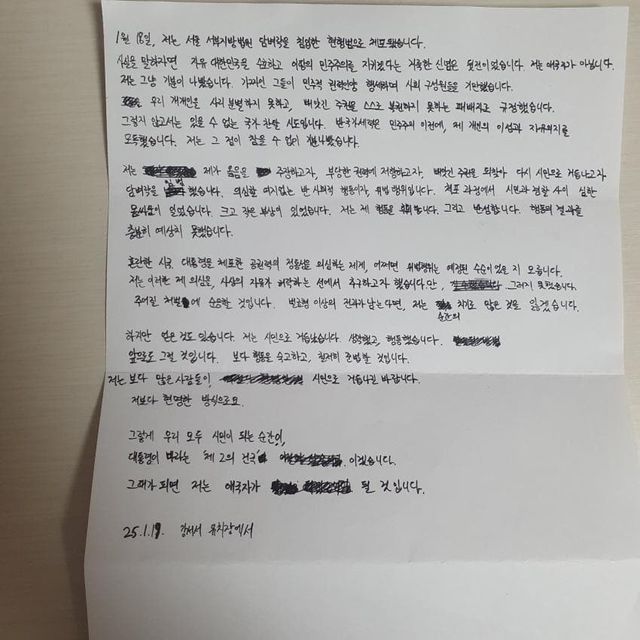 1월 18일, 저는 서울 서부지방법원 담벼락을 침입한 현행범으로 체포됐습니다.
사실을 말하자면 자유 대한민국을 수호하고 이 땅의 민주주의를 지키겠다는 거룩한 신념은 뒷전이었습니다. 저는 애국자가 아닙니다.
저는 그냥 기분이 나빴습니다. 그들이 민주적 권한인양 행세하며 사회 구성원들을 기만했습니다.
우리 개개인을 사리분별하지 못하고, 빼앗긴 주권을 스스로 복권하지 못하는 패배자로 규정했습니다.
그렇지 않고서는 있을 수 없는 국가 찬탈 시도입니다. 반국가세력은 민주주의 이전에, 제 개인의 이성과 자유의지를
모독했습니다. 저는 그 점이 참을 수 없이 화났습니다.
저는 제가 옳음을 주장하고자, 부당한 권력에 저항하고자, 빼앗긴 주권을 되찾아 다시 시민으로 거듭나고자
담벼락을 넘었습니다. 의심할 여지없는 반 사회적 행동이자, 위법 행위입니다. 체포 과정에서 시민과 경찰 사이 심한
몸싸움이 일었습니다. 크고 작은 부상이 있었습니다. 저는 제 행동을 후회합니다. 그리고 반성합니다. 행동의 결과를
충분히 예상치 못했습니다.
혼란한 시국, 대통령을 체포한 공권력의 정당성을 의심하는 제게, 어쩌면 위법행위는 예정된 수순이었을지 모릅니다.
저는 이러한 제 의심을, 사상의 자유가 허락하는 선에서 추구하고자 했습니다만, 그러지 못했습니다.
주어질 처벌에 순응할 것입니다. 벌금형 이상의 전과가 남는다면, 저는 순간의 치기로 많은 것을 잃겠습니다.
하지만 얻은 것도 있습니다. 저는 시민으로 거듭났습니다. 생각했고, 행동했습니다.
앞으로도 그럴 것입니다. 보다 행동을 숙고하고, 철저히 준법할 것입니다.
저는 보다 많은 사람들이, 시민으로 거듭나길 바랍니다.
저보다 현명한 방식으로요.
그렇게 우리 모두 시민이 되는 순간이,
대통령이 바라는 '제 2의 건국' 이겠습니다.
그때가 되면 저는 애국자가 될 것입니다.
25.1.19. 강서서 유치장에서